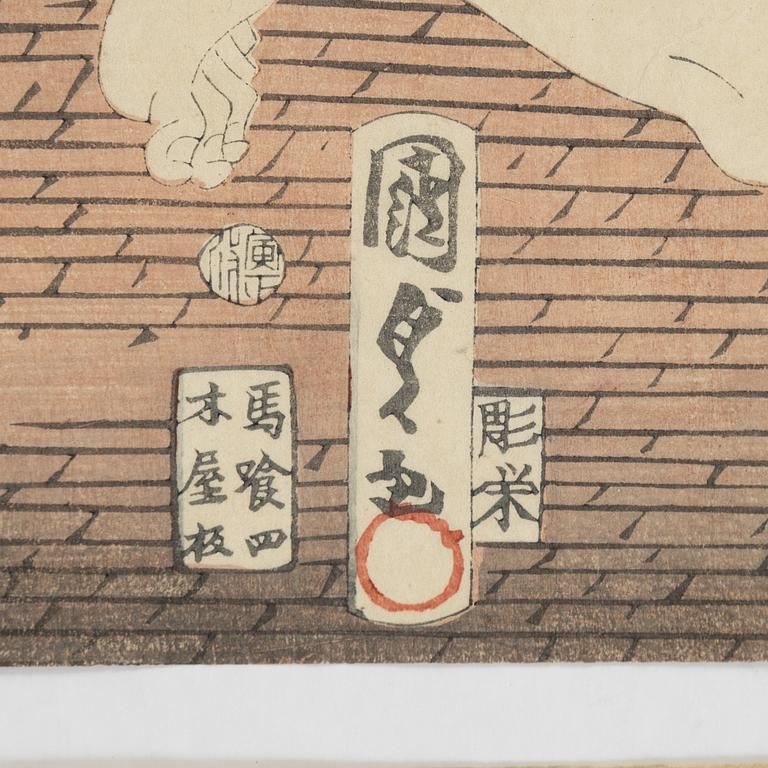 國貞画
彫栄
馬喰四
木屋板